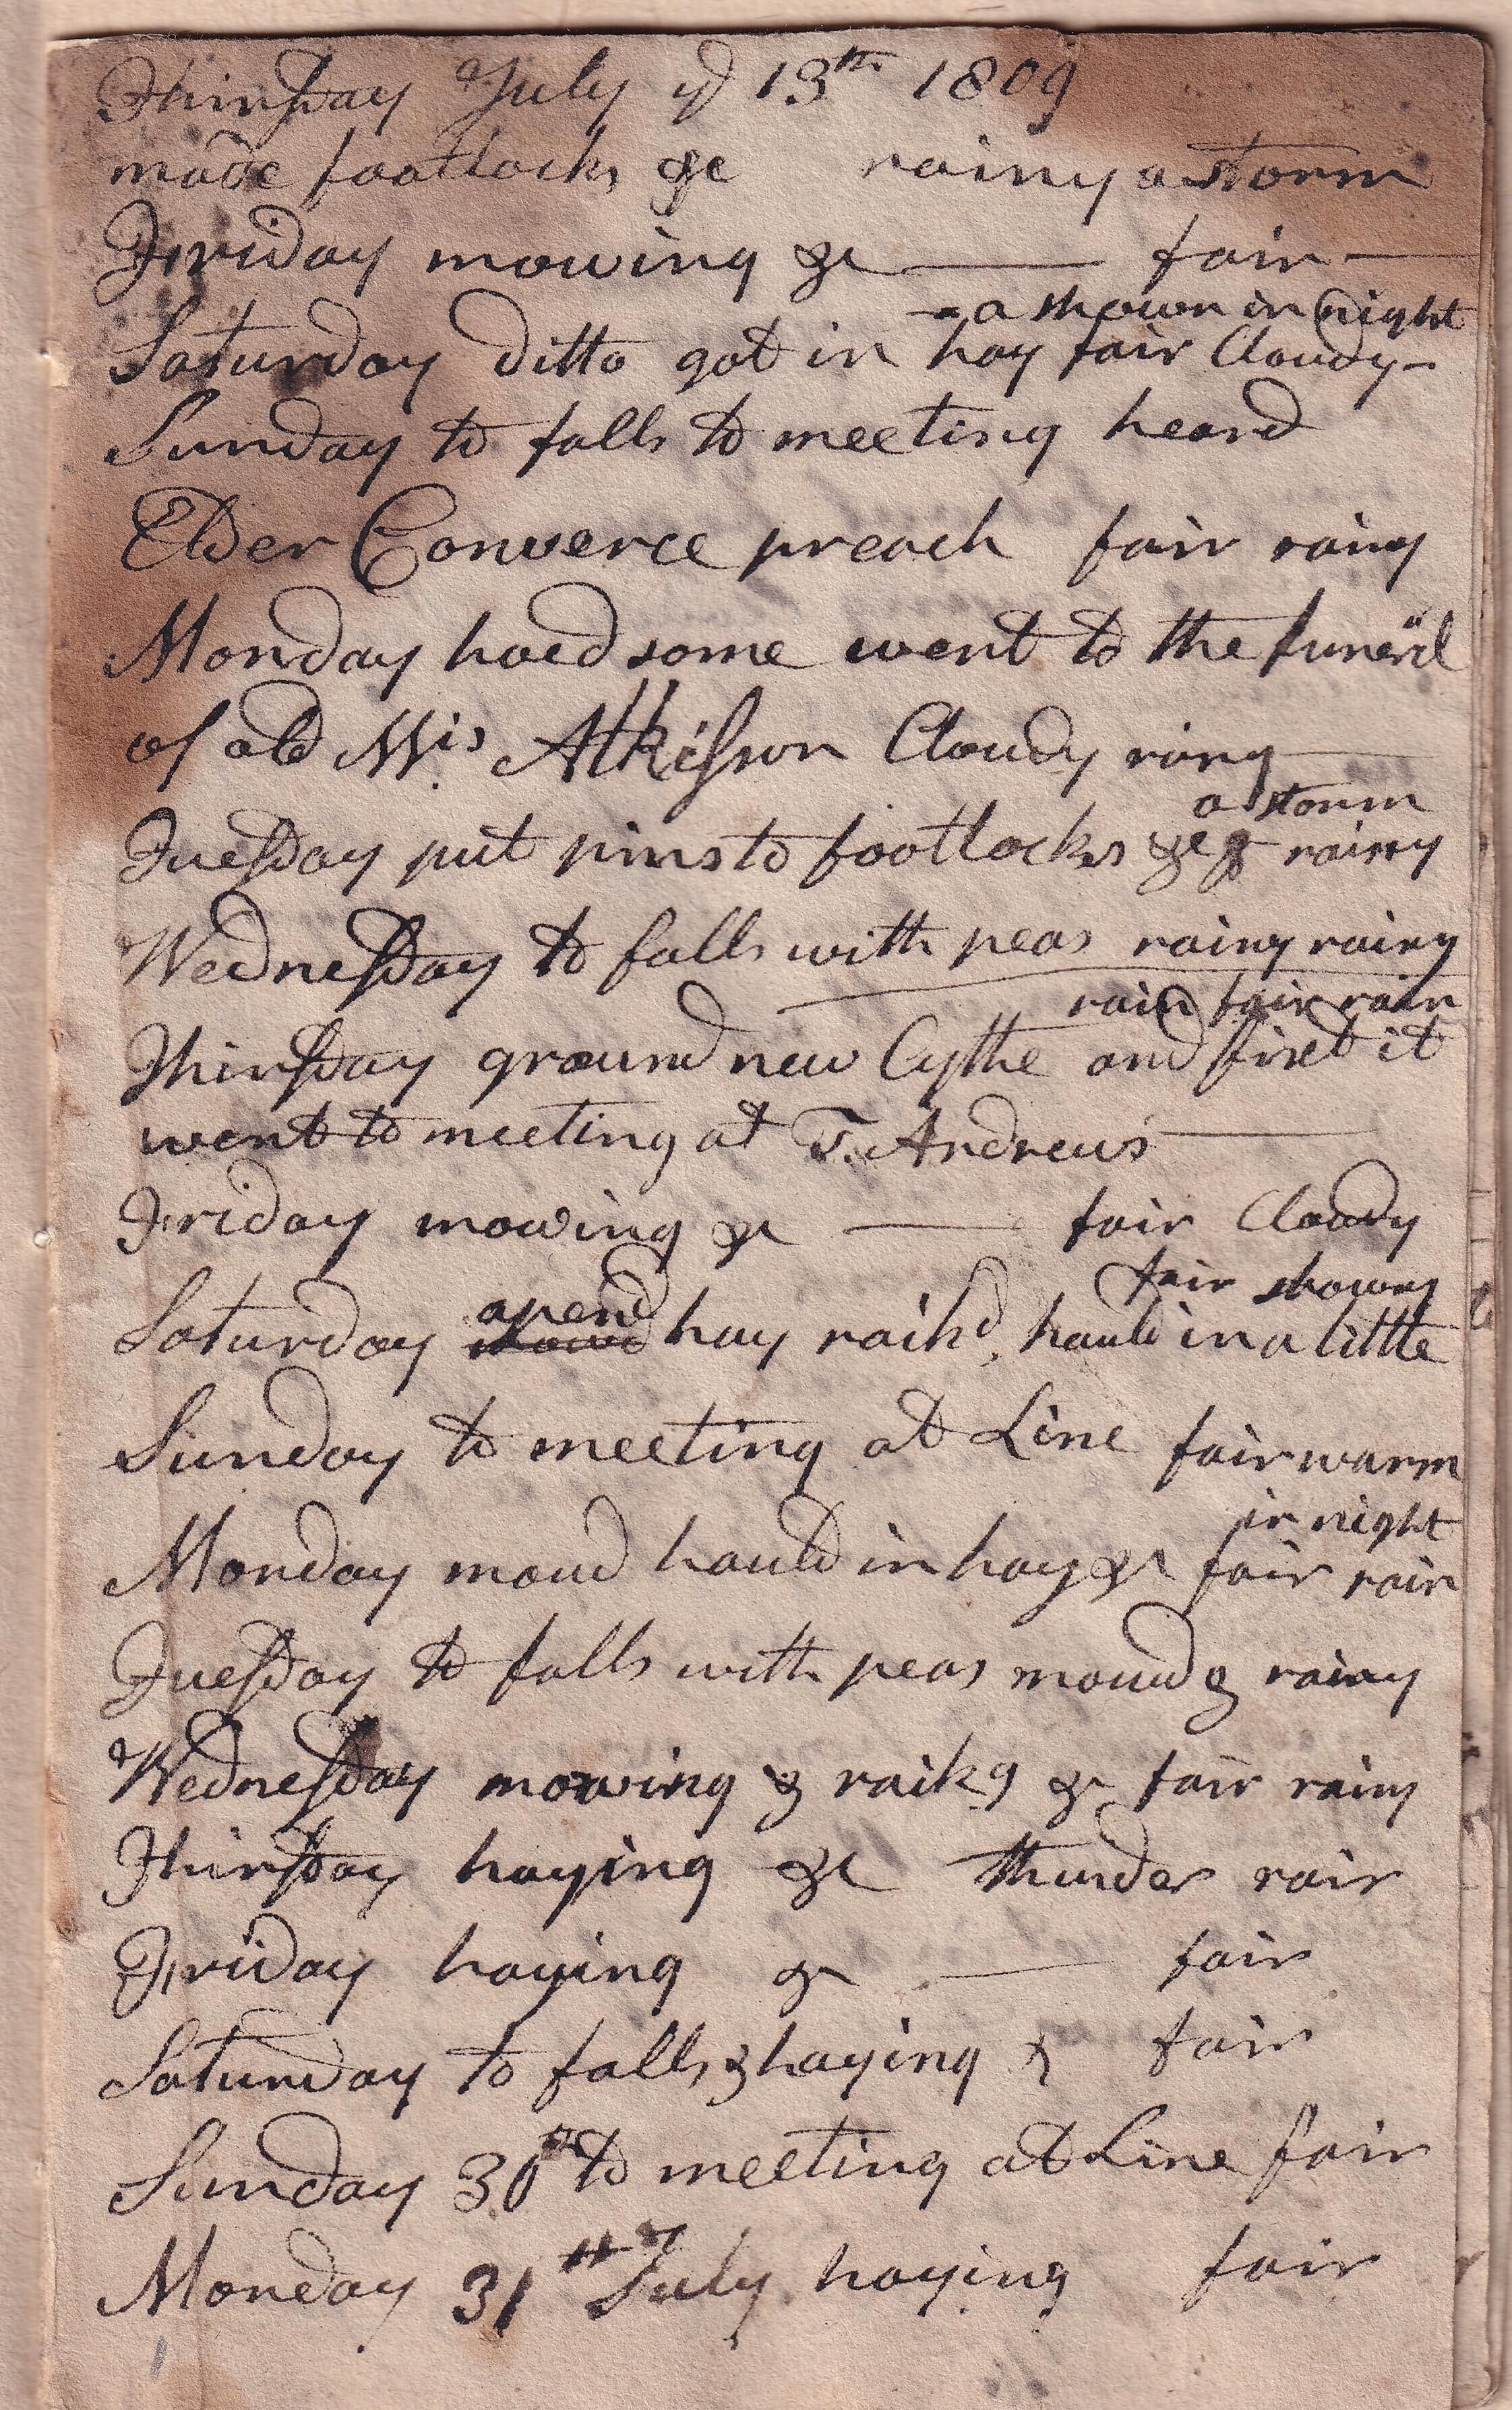 Thirsday July ye 13th 1809
made footlocks &c rainy a storm
Friday mowing &c — fair —
- a shower in night
Saturday ditto got in hay fair Cloudy -
Sunday to falls to meeting heard
Elder Converce preach fair rainy
Monday hoed some went to the funeral
of old Mis Atkisson Cloudy rainy —
a storm
Tuesday put pins to footlocks &c & rainy
Wednesday to falls with peas rainy rainy
rain fair rain
Thirsday ground new Cythe and fixet it
went to meeting at T. Andrews —
Friday mowing &c — fair Cloudy
fair showry
opend
Saturday hay raikd, hauld in a little
Sunday to meeting at Line fair warm
in night
Monday mowd hauld in hay &c fair rain
Tuesday to falls with peas mowd & rainy
Wednesday mowing & raikg &c fair rainy
Thirsday haying &c thunder rain
Friday haying &c — fair
Saturday to falls & haying & fair
Sunday 30th to meeting at Line fair
Monday 31th July haying fair